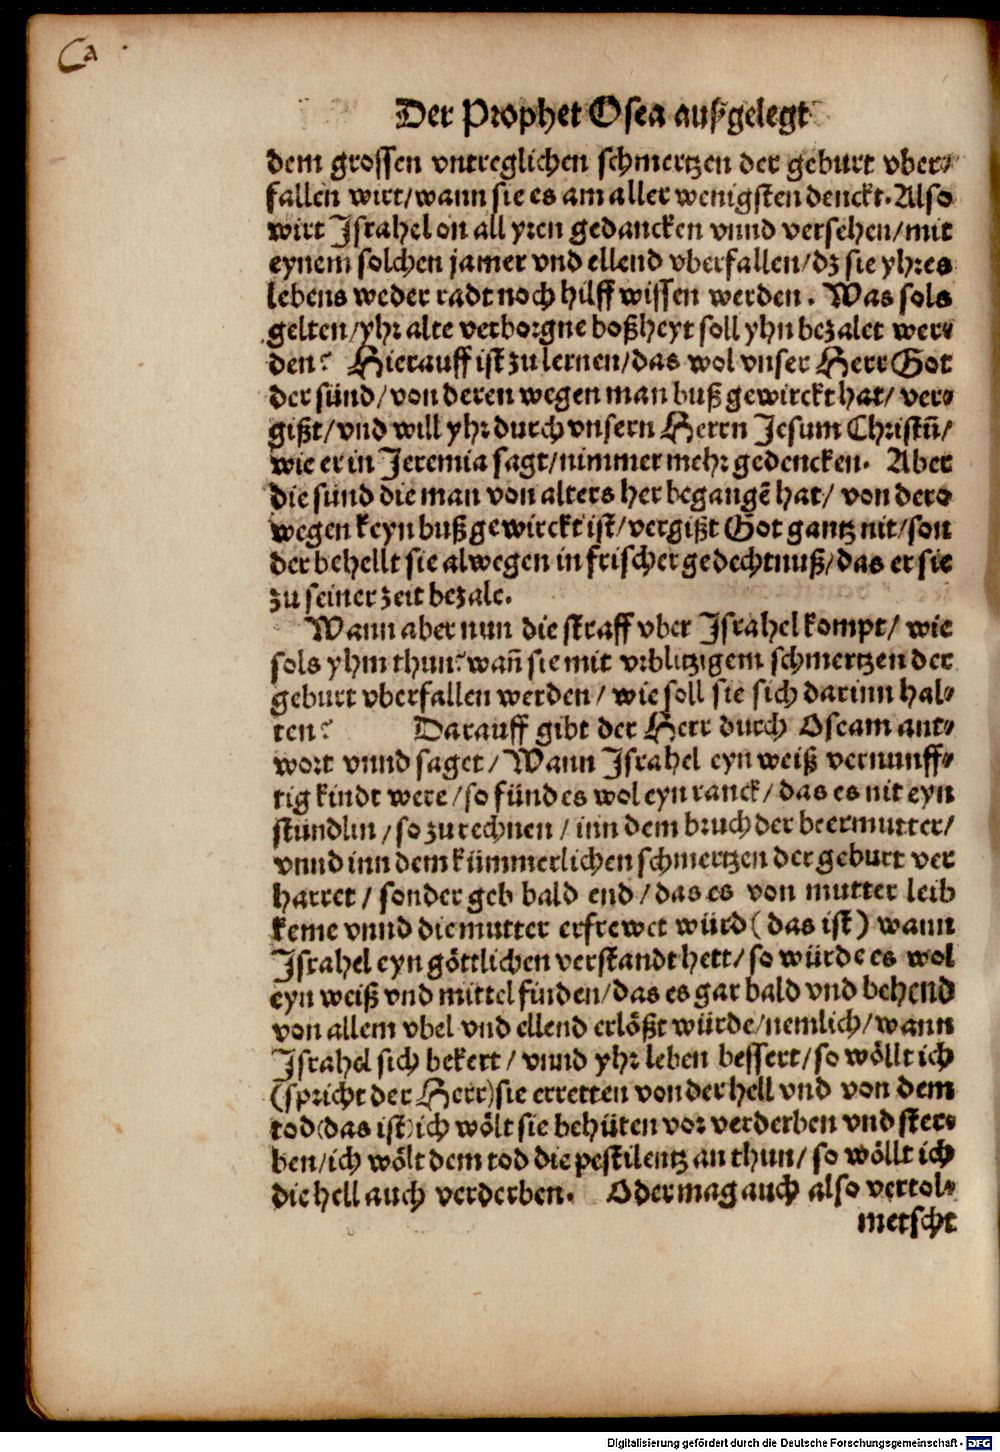 Ca
Der Prophet Osea außgelegt
dem grossen vntreglichen schmertzen der geburt vber⸗
fallen wirt/wann sie es am aller wenigsten denckt. Also
wirt Israhel on all yren gedancken vnnd versehen/mit
eynem solchen jamer vnd ellend vberfallen/dz sie yhres
lebens weder radt noch hilff wissen werden. Was sols
gelten/yhr alte verborgne boßheyt soll yhn bezalet wer⸗
den? Hierauff ist zu lernen/das wol vnser Herr Got
der sünd/von deren wegen man buß gewirckt hat/ ver⸗
gißt/vnd will yhr durch vnsern Herrn Jesum Christū/
wie er in Jeremia sagt/nimmer mehr gedencken. Aber
die sünd die man von alters her begangē hat/ von dero
wegen keyn buß gewirckt ist/vergißt Got gantz nit/son
der behellt sie alwegen in frischer gedechtnuß/das er sie
zu seiner zeit bezale.
Wann aber nun die straff vber Israhel kompt/ wie
sols yhm thun? wañ sie mit vrblitzigem schmertzen der
geburt vberfallen werden/ wie soll sie sich darinn hal⸗
ten? Darauff gibt der Herr durch Oseam ant⸗
wort vnnd saget/ Wann Israhel eyn weiß vernunff⸗
tig kindt were/so fünd es wol eyn ranck/das es nit eyn
stündlin/so zu rechnen/inn dem bruch der beermutter/
vnnd inn dem kümmerlichen schmertzen der geburt ver
harret/ sonder geb bald end/das es von mutter leib
keme vnnd die mutter erfrewet würd (das ist) wann
Israhel eyn göttlichen verstandt hett/so würde es wol
eyn weiß vnd mittel finden/das es gar bald vnd behend
von allem vbel vnd ellend erlößt würde/nemlich/wann
Israhel sich bekert/ vnnd yhr leben bessert/so wöllt ich
(spricht der Herr) sie erretten von der hell vnd von dem
tod (das ist) ich wölt sie behüten vor verderben vnd ster⸗
ben/ich wölt dem tod die pestilentz an thun/ so wöllt ich
die hell auch verderben. Oder mag auch also vertol⸗
metscht
Digitalisierung gefördert durch die Deutsche Forschungsgemeinschaft - DFG